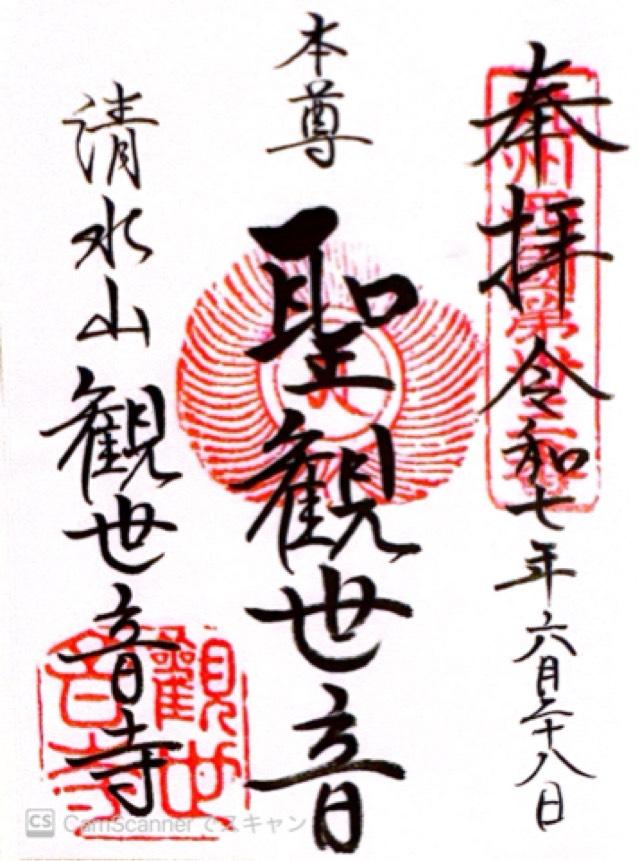 奉拝 令和七年六月二十八日
本尊
聖観世音
清水山 観世音寺
観世音寺
CS CamScanner でスキャン